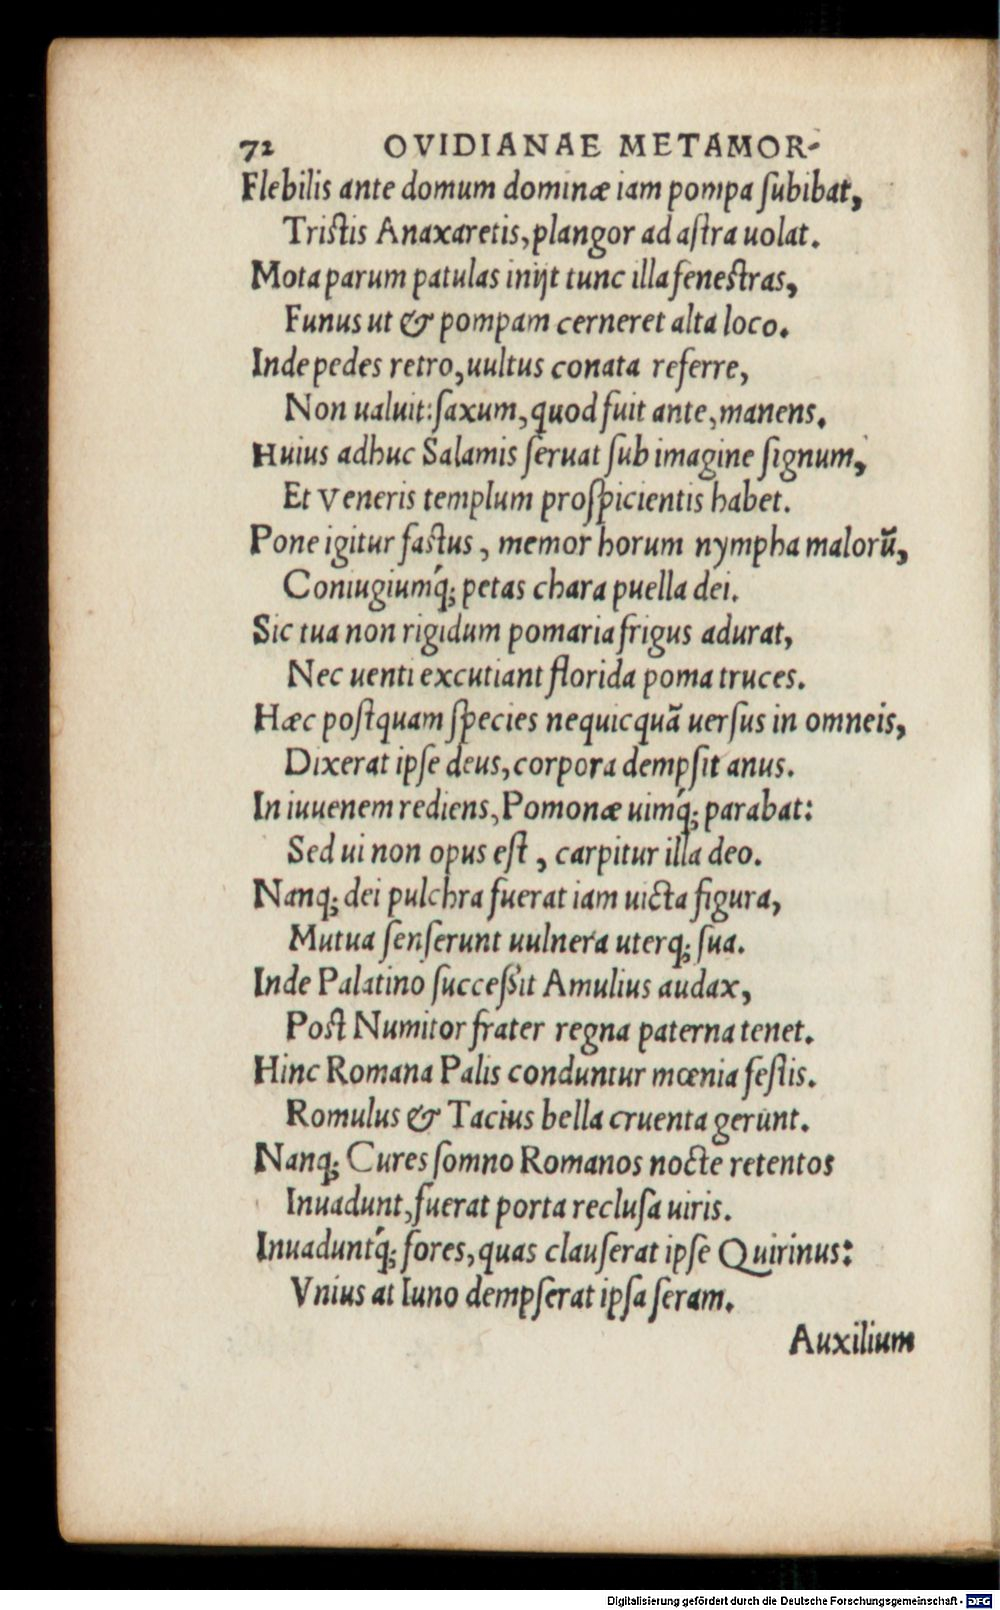 72 OVIDIANAE METAMOR-
Flebilis ante domum dominæ iam pompa ſubibat,
Triſtis Anaxaretis, plangor ad aſtra uolat.
Mota parum patulas inijt tunc illa feneſtras,
Funus ut & pompam cerneret alta loco.
Inde pedes retro, uultus conata referre,
Non ualuit: ſaxum, quod fuit ante, manens.
Huius adhuc Salamis ſeruat ſub imagine ſignum,
Et Veneris templum proſpicientis habet.
Pone igitur faſtus, memor horum nympha malorũ,
Coniugiumq́; petas chara puella dei.
Sic tua non rigidum pomaria frigus adurat,
Nec uenti excutiant florida poma truces.
Hæc poſtquam ſpecies nequicquã uerſus in omneis,
Dixerat ipſe deus, corpora dempſit anus.
In iuuenem rediens, Pomonæ uimq́; parabat:
Sed ui non opus eſt, carpitur illa deo.
Nanq; dei pulchra fuerat iam uicta figura,
Mutua ſenſerunt uulnera uterq; ſua.
Inde Palatino ſucceſſit Amulius audax,
Poſt Numitor frater regna paterna tenet.
Hinc Romana Palis conduntur mœnia feſtis.
Romulus & Tacius bella cruenta gerunt.
Nanq; Cures ſomno Romanos nocte retentos
Inuadunt, fuerat porta recluſa uiris.
Inuaduntq́; fores, quas clauſerat ipſe Quirinus:
Vnius at Iuno dempſerat ipſa ſeram.
Auxilium
Digitalisierung gefördert durch die Deutsche Forschungsgemeinschaft - DFG